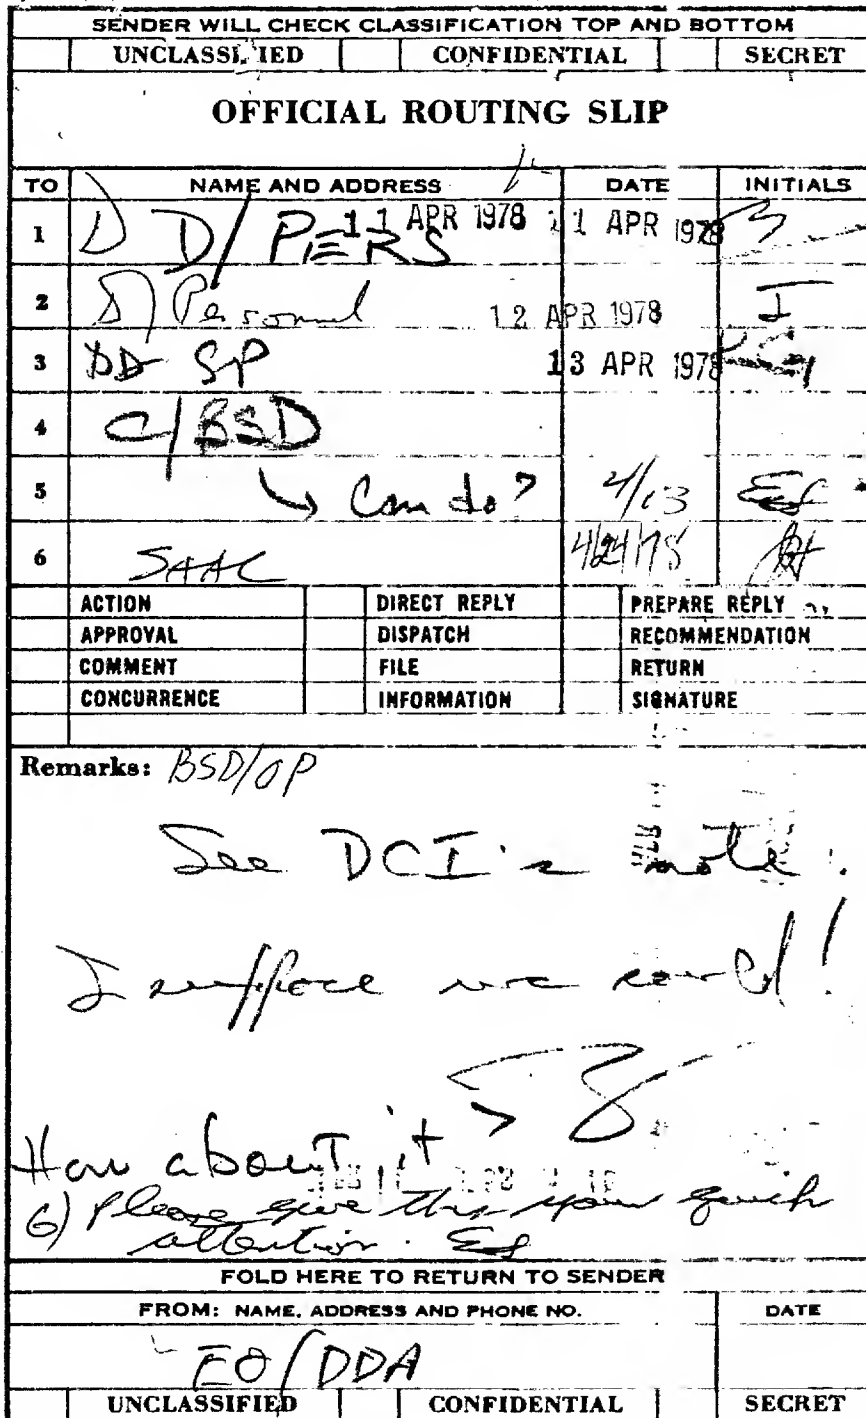 SENDER WILL CHECK CLASSIFICATION TOP AND BOTTOM
UNCLASSIFIED CONFIDENTIAL SECRET
OFFICIAL ROUTING SLIP
TO NAME AND ADDRESS DATE INITIALS
1 D D/PERS 11 APR 1978 11 APR 1978
2 D/Personnel 12 APR 1978 I
3 DD SP 13 APR 1978
4 C/BSD
5 ↳ Can do? 4/13 Es
6 SAAC 4/24/78
ACTION DIRECT REPLY PREPARE REPLY
APPROVAL DISPATCH RECOMMENDATION
COMMENT FILE RETURN
CONCURRENCE INFORMATION SIGNATURE
Remarks: BSD/OP
See DCI's note.
I suppose we could!
How about it >
6) Please give this your quick
attention. Es
FOLD HERE TO RETURN TO SENDER
FROM: NAME, ADDRESS AND PHONE NO. DATE
EO/DDA
UNCLASSIFIED CONFIDENTIAL SECRET